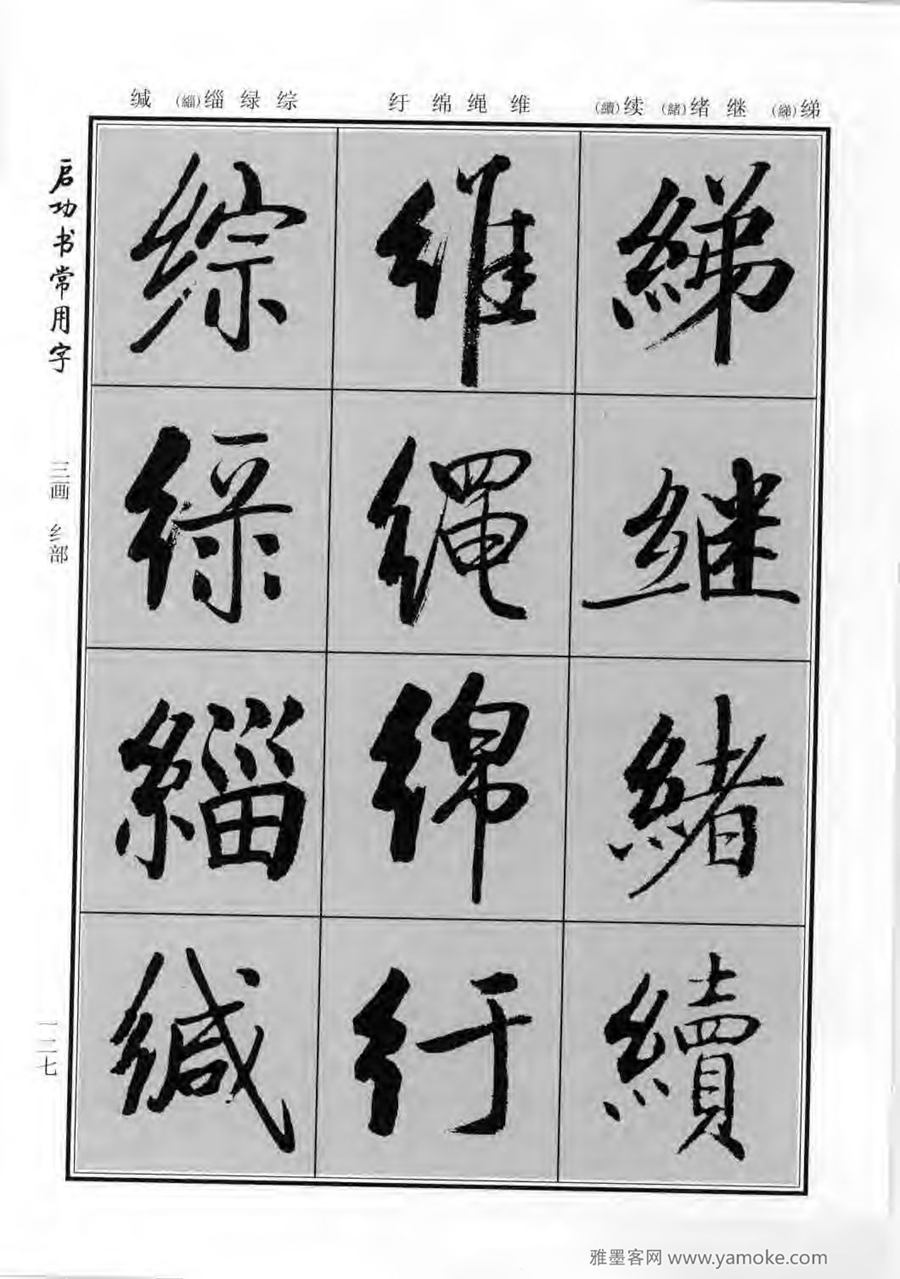 绨(綈) 继 绪(緒) 续(續)
维 绳 绵 纡
综 绿 缁(緇) 缄
綈
继
緒
續
维
绳
绵
纡
综
绿
緇
缄
启功书常用字
三画 纟部
一二七
雅墨客网 www.yamoke.com